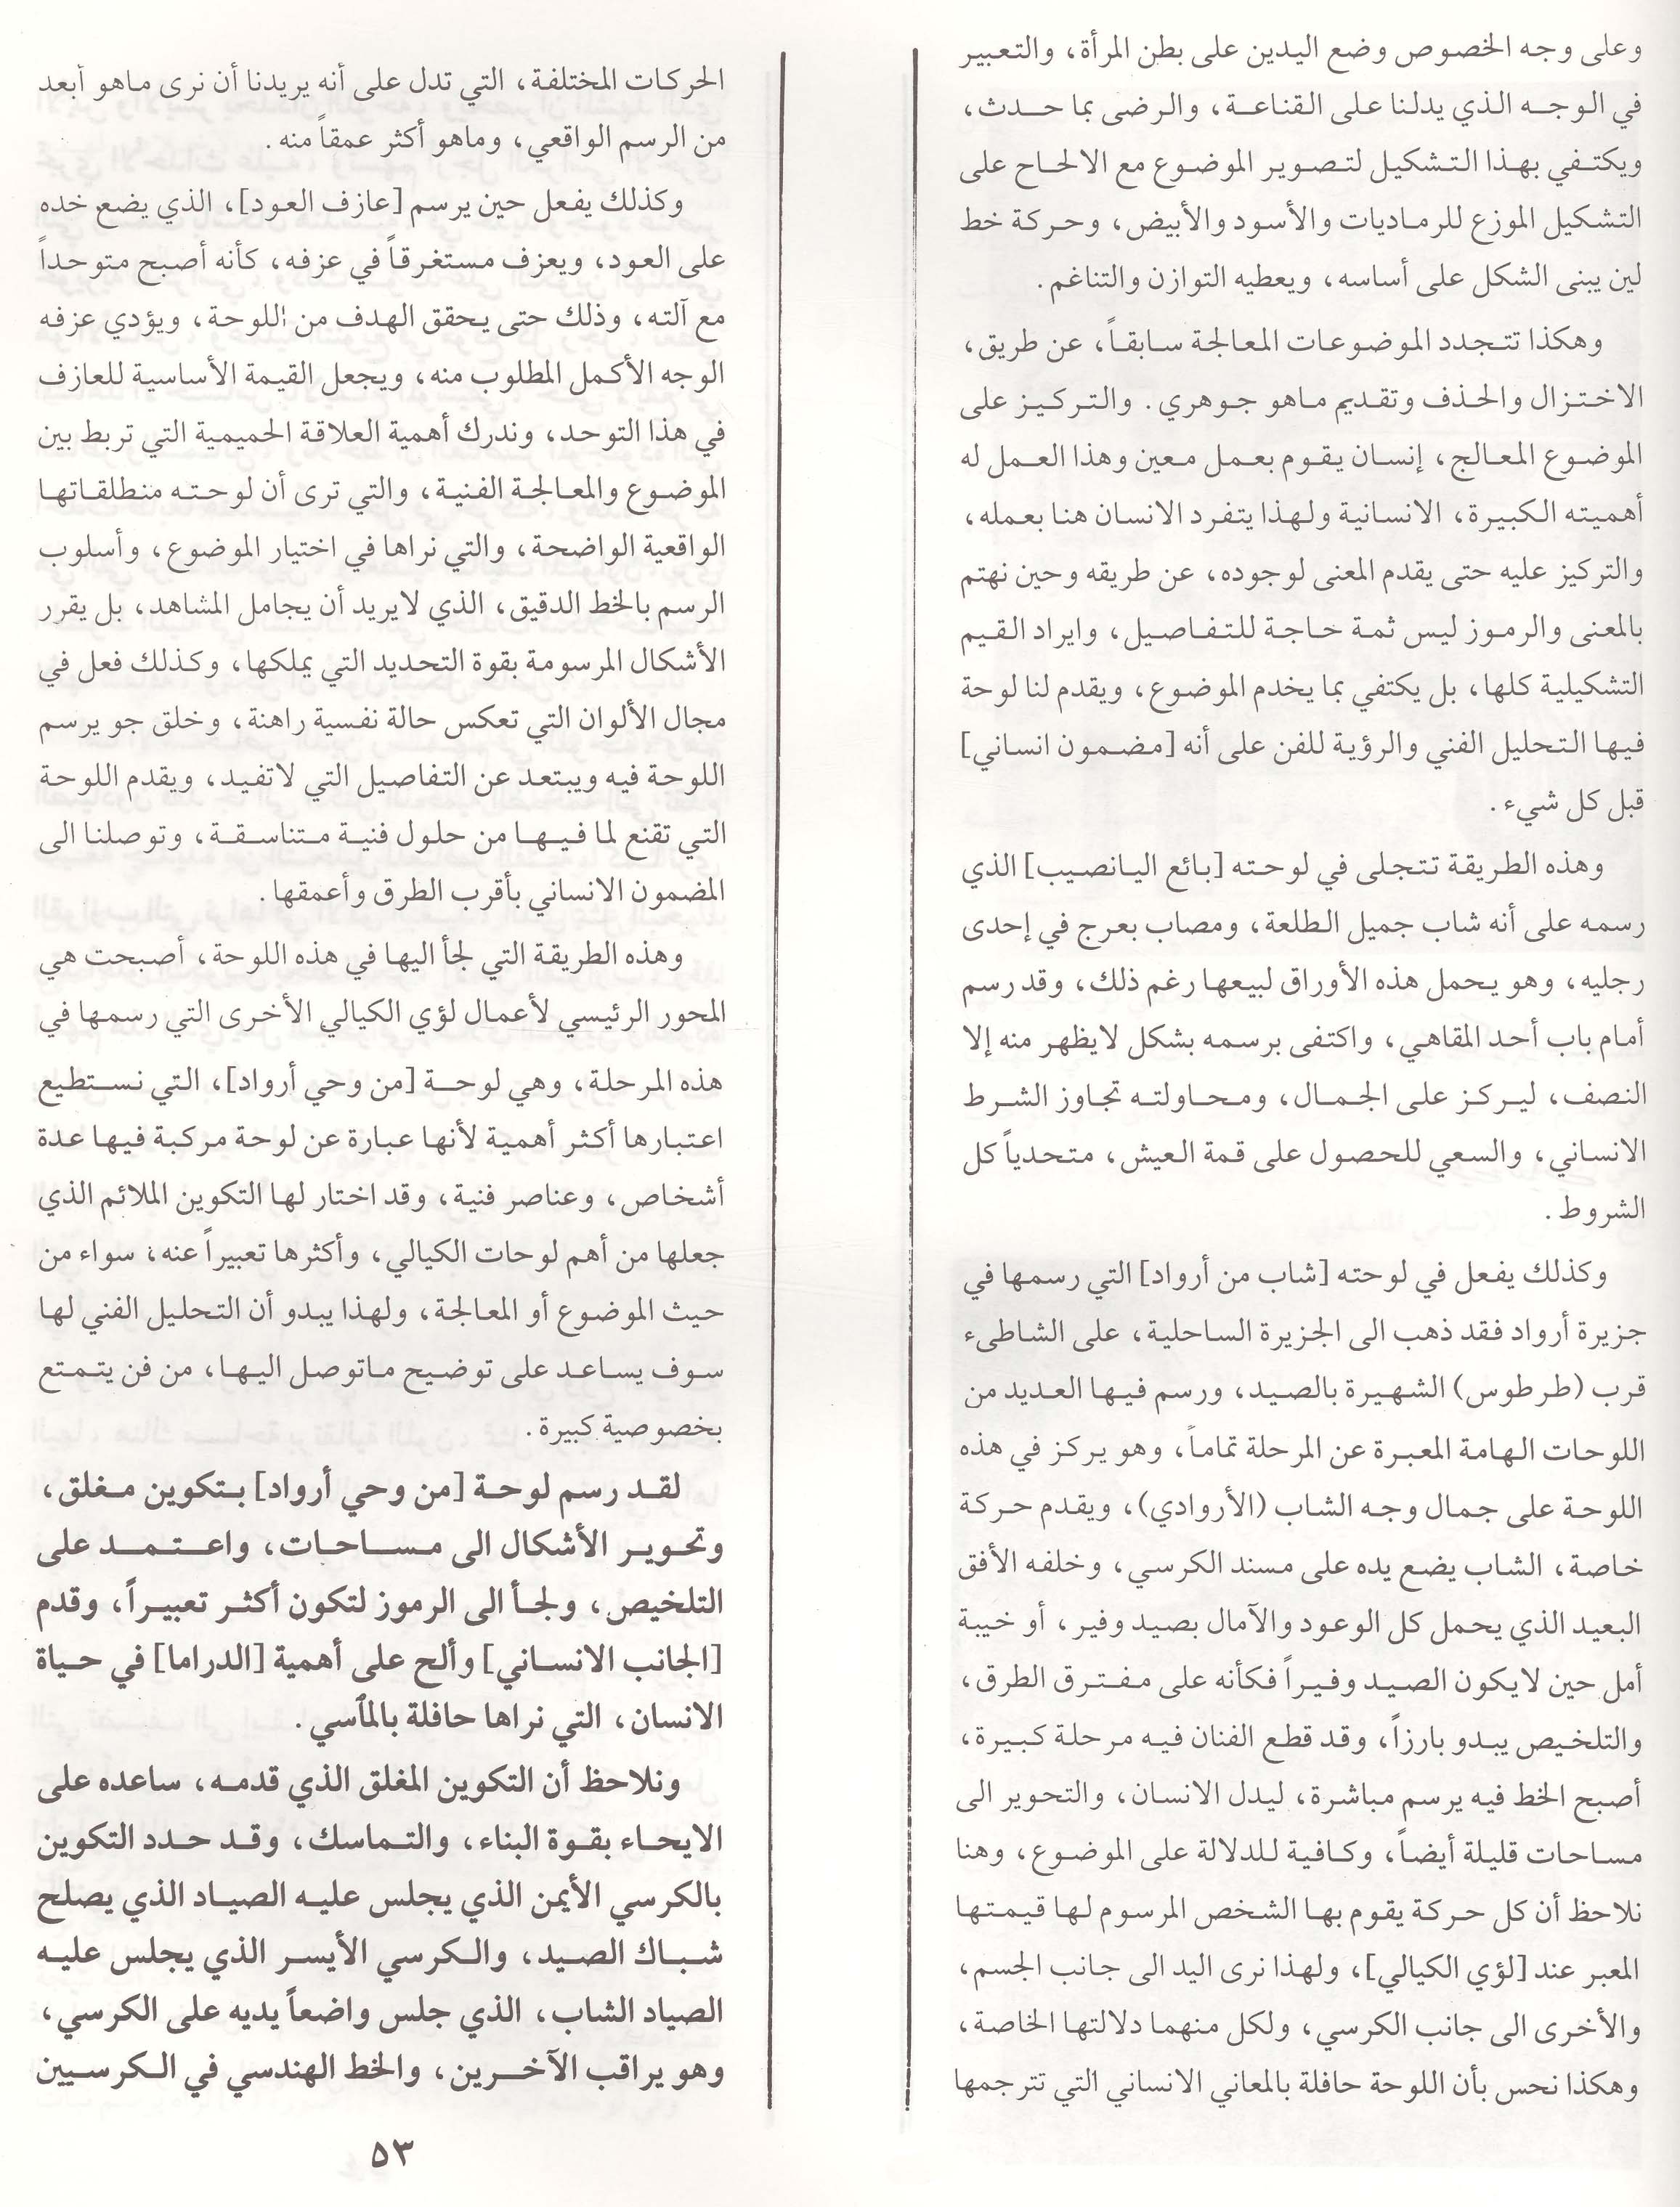 وعلى وجه الخصوص وضع اليدين على بطن المرأة، والتعبير
في الوجه الذي يدلنا على القناعة، والرضى بما حدث،
ويكتفي بهذا التشكيل لتصوير الموضوع مع الالحاح على
التشكيل الموزع للرماديات والأسود والأبيض، وحركة خط
لين يبنى الشكل على أساسه، ويعطيه التوازن والتناغم.
وهكذا تتجدد الموضوعات المعالجة سابقاً، عن طريق،
الاختزال والحذف وتقديم ماهو جوهري. والتركيز على
الموضوع المعالج، إنسان يقوم بعمل معين وهذا العمل له
أهميته الكبيرة، الانسانية ولهذا يتفرد الانسان هنا بعمله،
والتركيز عليه حتى يقدم المعنى لوجوده، عن طريقه وحين نهتم
بالمعنى والرموز ليس ثمة حاجة للتفاصيل، وايراد القيم
التشكيلية كلها، بل يكتفي بما يخدم الموضوع، ويقدم لنا لوحة
فيها التحليل الفني والرؤية للفن على أنه [مضمون انساني]
قبل كل شيء.
وهذه الطريقة تتجلى في لوحته [بائع اليانصيب] الذي
رسمه على أنه شاب جميل الطلعة، ومصاب بعرج في إحدى
رجليه، وهو يحمل هذه الأوراق لبيعها رغم ذلك، وقد رسم
أمام باب أحد المقاهي، واكتفى برسمه بشكل لايظهر منه إلا
النصف، ليركز على الجمال، ومحاولته تجاوز الشرط
الانساني، والسعي للحصول على قمة العيش، متحدياً كل
الشروط.
وكذلك يفعل في لوحته [شاب من أرواد] التي رسمها في
جزيرة أرواد فقد ذهب الى الجزيرة الساحلية، على الشاطىء
قرب (طرطوس) الشهيرة بالصيد، ورسم فيها العديد من
اللوحات الهامة المعبرة عن المرحلة تماماً، وهو يركز في هذه
اللوحة على جمال وجه الشاب (الأروادي)، ويقدم حركة
خاصة، الشاب يضع يده على مسند الكرسي، وخلفه الأفق
البعيد الذي يحمل كل الوعود والآمال بصيد وفير، أو خيبة
أمل حين لايكون الصيد وفيراً فكأنه على مفترق الطرق،
والتلخيص يبدو بارزاً، وقد قطع الفنان فيه مرحلة كبيرة،
أصبح الخط فيه يرسم مباشرة، ليدل الانسان، والتحوير الى
مساحات قليلة أيضاً، وكافية للدلالة على الموضوع، وهنا
نلاحظ أن كل حركة يقوم بها الشخص المرسوم لها قيمتها
المعبر عند [لؤي الكيالي]، ولهذا نرى اليد الى جانب الجسم،
والأخرى الى جانب الكرسي، ولكل منهما دلالتها الخاصة،
وهكذا نحس بأن اللوحة حافلة بالمعاني الانساني التي تترجمها
الحركات المختلفة، التي تدل على أنه يريدنا أن نرى ماهو أبعد
من الرسم الواقعي، وماهو أكثر عمقاً منه.
وكذلك يفعل حين يرسم [عازف العود]، الذي يضع خده
على العود، ويعزف مستغرقاً في عزفه، كأنه أصبح متوحداً
مع آلته، وذلك حتى يحقق الهدف من اللوحة، ويؤدي عزفه
الوجه الأكمل المطلوب منه، ويجعل القيمة الأساسية للعازف
في هذا التوحد، وندرك أهمية العلاقة الحميمية التي تربط بين
الموضوع والمعالجة الفنية، والتي ترى أن لوحته منطلقاتها
الواقعية الواضحة، والتي نراها في اختيار الموضوع، وأسلوب
الرسم بالخط الدقيق، الذي لايريد أن يجامل المشاهد، بل يقرر
الأشكال المرسومة بقوة التحديد التي يملكها، وكذلك فعل في
مجال الألوان التي تعكس حالة نفسية راهنة، وخلق جو يرسم
اللوحة فيه ويبتعد عن التفاصيل التي لاتفيد، ويقدم اللوحة
التي تقنع لما فيها من حلول فنية متناسقة، وتوصلنا الى
المضمون الانساني بأقرب الطرق وأعمقها.
وهذه الطريقة التي لجأ اليها في هذه اللوحة، أصبحت هي
المحور الرئيسي لأعمال لؤي الكيالي الأخرى التي رسمها في
هذه المرحلة، وهي لوحة [من وحي أرواد]، التي نستطيع
اعتبارها أكثر أهمية لأنها عبارة عن لوحة مركبة فيها عدة
أشخاص، وعناصر فنية، وقد اختار لها التكوين الملائم الذي
جعلها من أهم لوحات الكيالي، وأكثرها تعبيراً عنه، سواء من
حيث الموضوع أو المعالجة، ولهذا يبدو أن التحليل الفني لها
سوف يساعد على توضيح ماتوصل اليها، من فن يتمتع
بخصوصية كبيرة.
لقد رسم لوحة [من وحي أرواد] بتكوين مغلق،
وتحوير الأشكال الى مساحات، واعتمد على
التلخيص، ولجأ الى الرموز لتكون أكثر تعبيراً، وقدم
[الجانب الانساني] وألح على أهمية [الدراما] في حياة
الانسان، التي نراها حافلة بالمآسي.
ونلاحظ أن التكوين المغلق الذي قدمه، ساعده على
الايحاء بقوة البناء، والتماسك، وقد حدد التكوين
بالكرسي الأيمن الذي يجلس عليه الصياد الذي يصلح
شباك الصيد، والكرسي الأيسر الذي يجلس عليه
الصياد الشاب، الذي جلس واضعاً يديه على الكرسي،
وهو يراقب الآخرين، والخط الهندسي في الكرسيين
٥٣